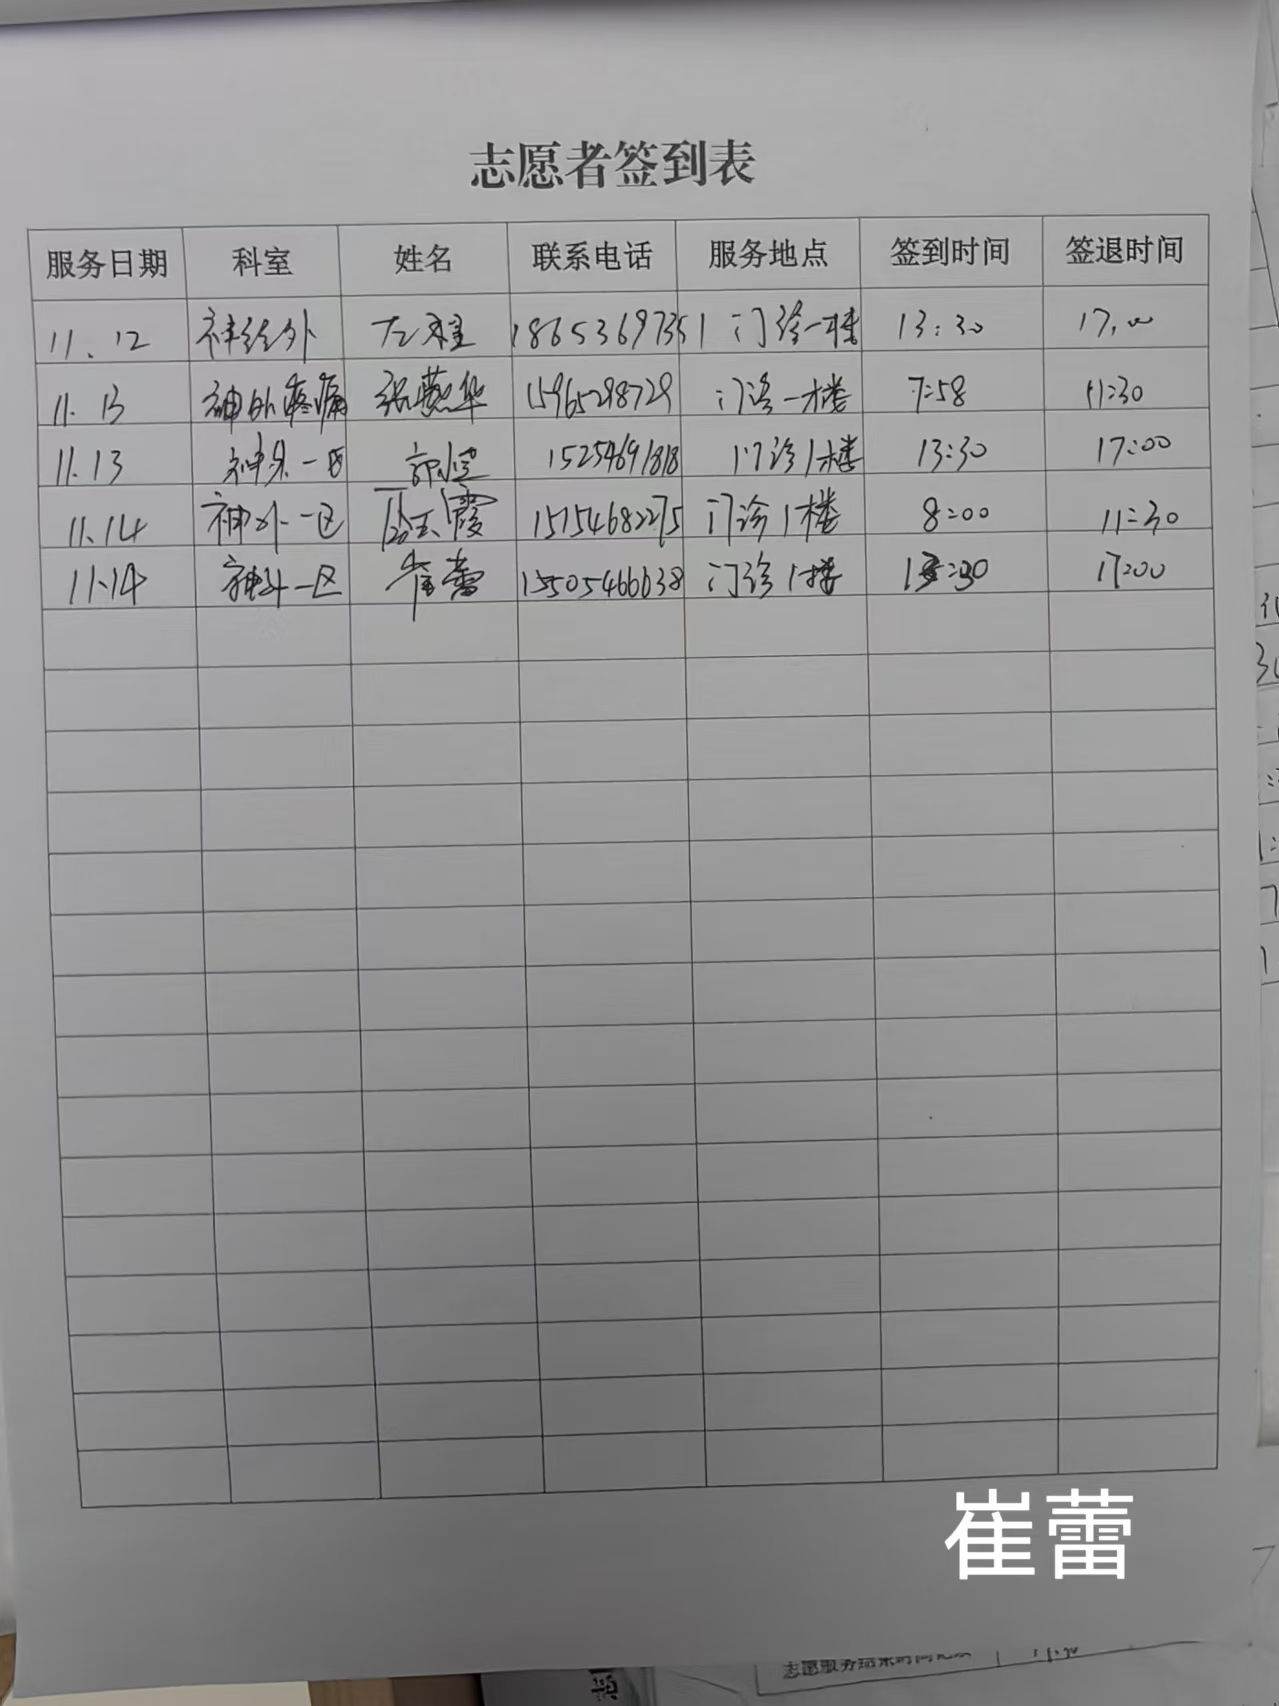 志愿者签到表
服务日期 科室 姓名 联系电话 服务地点 签到时间 签退时间
11.12 神经外 左祥 18653697351 门诊一楼 13:30 17:00
11.13 神外疼痛 张燕华 15965298729 门诊一楼 7:58 11:30
11.13 神外一区 15254691818 门诊1楼 13:30 17:00
11.14 神外一区 玉霞 15154682275 门诊1楼 8:00 11:30
11.14 神外一区 崔蕾 15505466638 门诊1楼 13:30 17:00
崔蕾